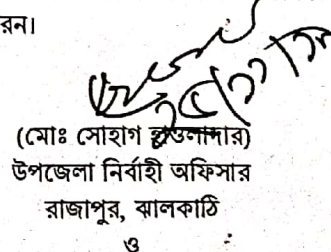 রন।
২৫/১১/১৮
(মোঃ সোহাগ হাওলাদার)
উপজেলা নির্বাহী অফিসার
রাজাপুর, ঝালকাঠি
ও